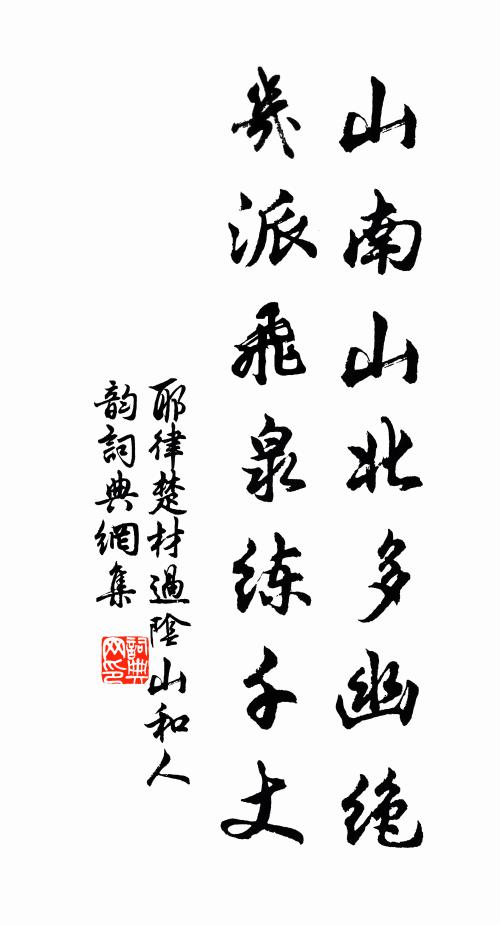 山南山北多幽绝
幾派飛泉练千丈
耶律楚材過陰山和人
韵詞典網集
詞典
网印